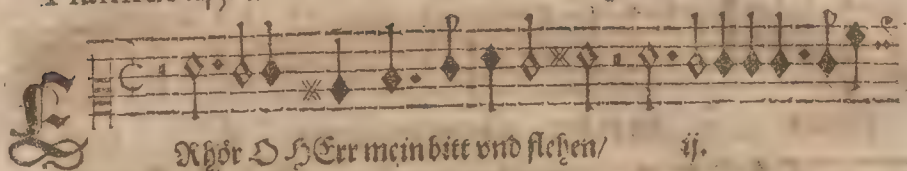 E
Rhör O HErr mein bitt vnd flehen/ ij.